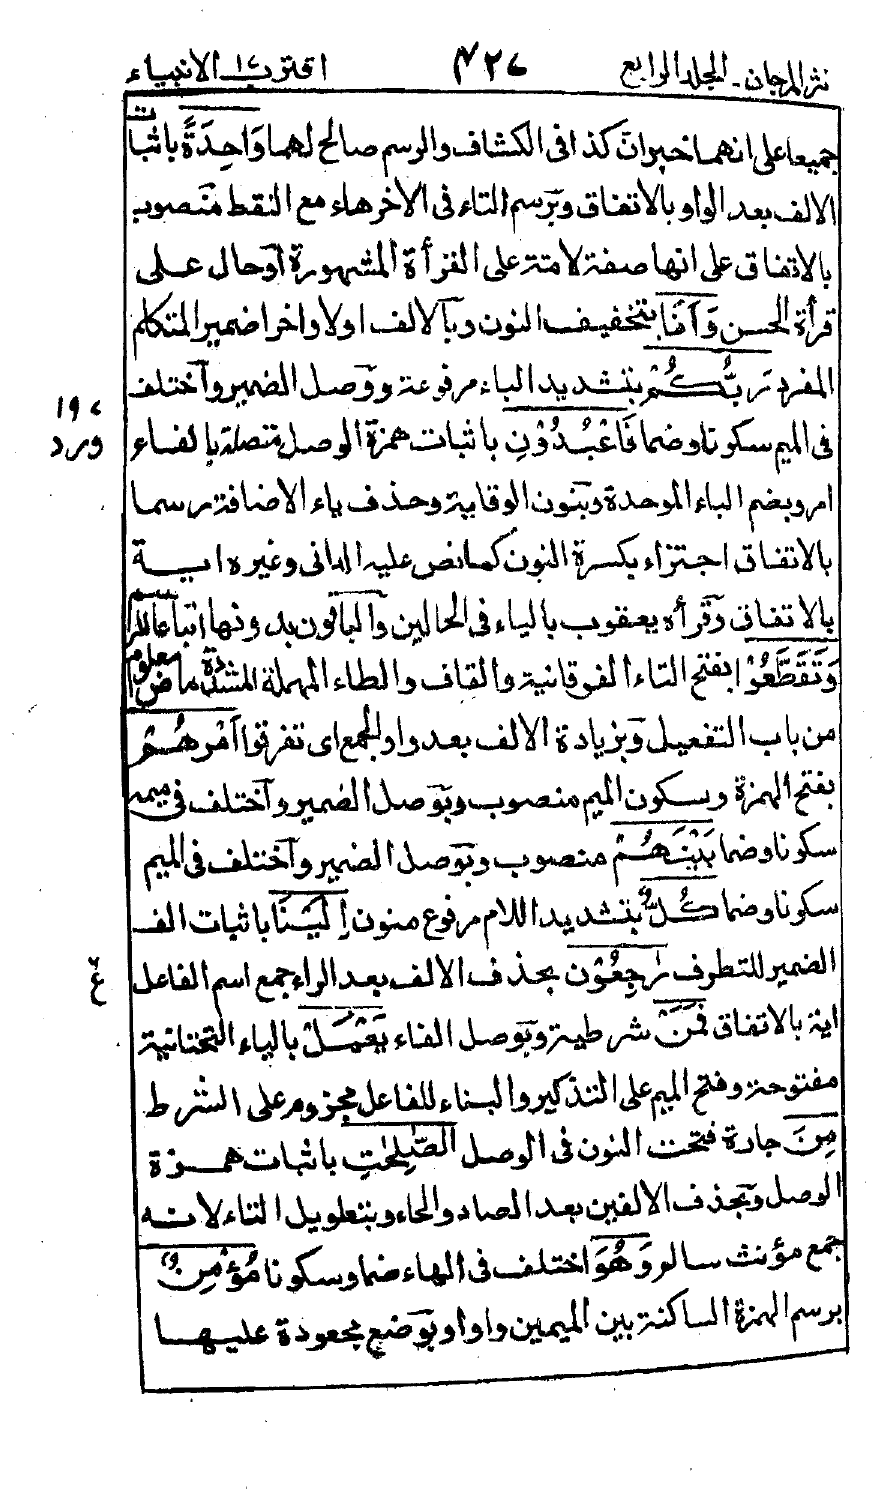 نثر المرجان ـ المجلد الرابع ٤٢٧ اقترب ١٧ الانبياء
جميعا على انهما خبران كذا فى الكشاف والرسم صالح لهما وَاحِدَةً باثبات
الالف بعد الواو بالاتفاق وبرسم التاء فى الاخر هاء مع النقط منصوب
بالاتفاق على انها صفة لامة على القرأة المشهورة اوحال على
قرأة الحسن وَاَنَا بتخفيف النون وبالالف اولا واخرا ضمير المتكلم
المفرد رَبُّكُمْ بتشديد الباء مرفوعة ووصل الضمير واختلف
فى الميم سكونا وضما فَاعْبُدُوْنِ باثبات همزة الوصل متصلة بالفاء
امر وبضم الباء الموحدة وبنون الوقاية وحذف ياء الاضافة رسما
بالاتفاق اجتزاء بكسرة النون كما نص عليه الدانى وغيره اية
بالاتفاق وقرأه يعقوب بالياء فى الحالين والباقون بدونها اتباعا للرسم
وَتَقَطَّعُوْا بفتح التاء الفوقانية والقاف والطاء المهملة المشددة ماض معلوم
من باب التفعيل وبزيادة الالف بعد واو الجمع اى تفرقوا اَمْرَهُمْ
بفتح الهمزة وسكون الميم منصوب وبوصل الضمير واختلف فى ميمه
سكونا وضما بَيْنَهُمْ منصوب وبوصل الضمير واختلف فى الميم
سكونا وضما كُلٌّ بتشديد اللام مرفوع منون اِلَيْنَا باثبات الف
الضمير للتطرف رٰجِعُوْنَ بحذف الالف بعد الراء جمع اسم الفاعل
اية بالاتفاق فَمَنْ شرطية وبوصل الفاء يَعْمَلْ بالياء التحتانية
مفتوحة وفتح الميم على التذكير والبناء للفاعل مجزوم على الشرط
مِنَ جارة فتحت النون فى الوصل الصّٰلِحٰتِ باثبات همزة
الوصل وبحذف الالفين بعد الصاد والحاء وبتطويل التاء لانه
جمع مؤنث سالم وَهُوَ اختلف فى الهاء ضما وسكونا مُؤْمِنٌ
برسم الهمزة الساكنة بين الميمين واوا وبوضع مجعودة عليها
ع